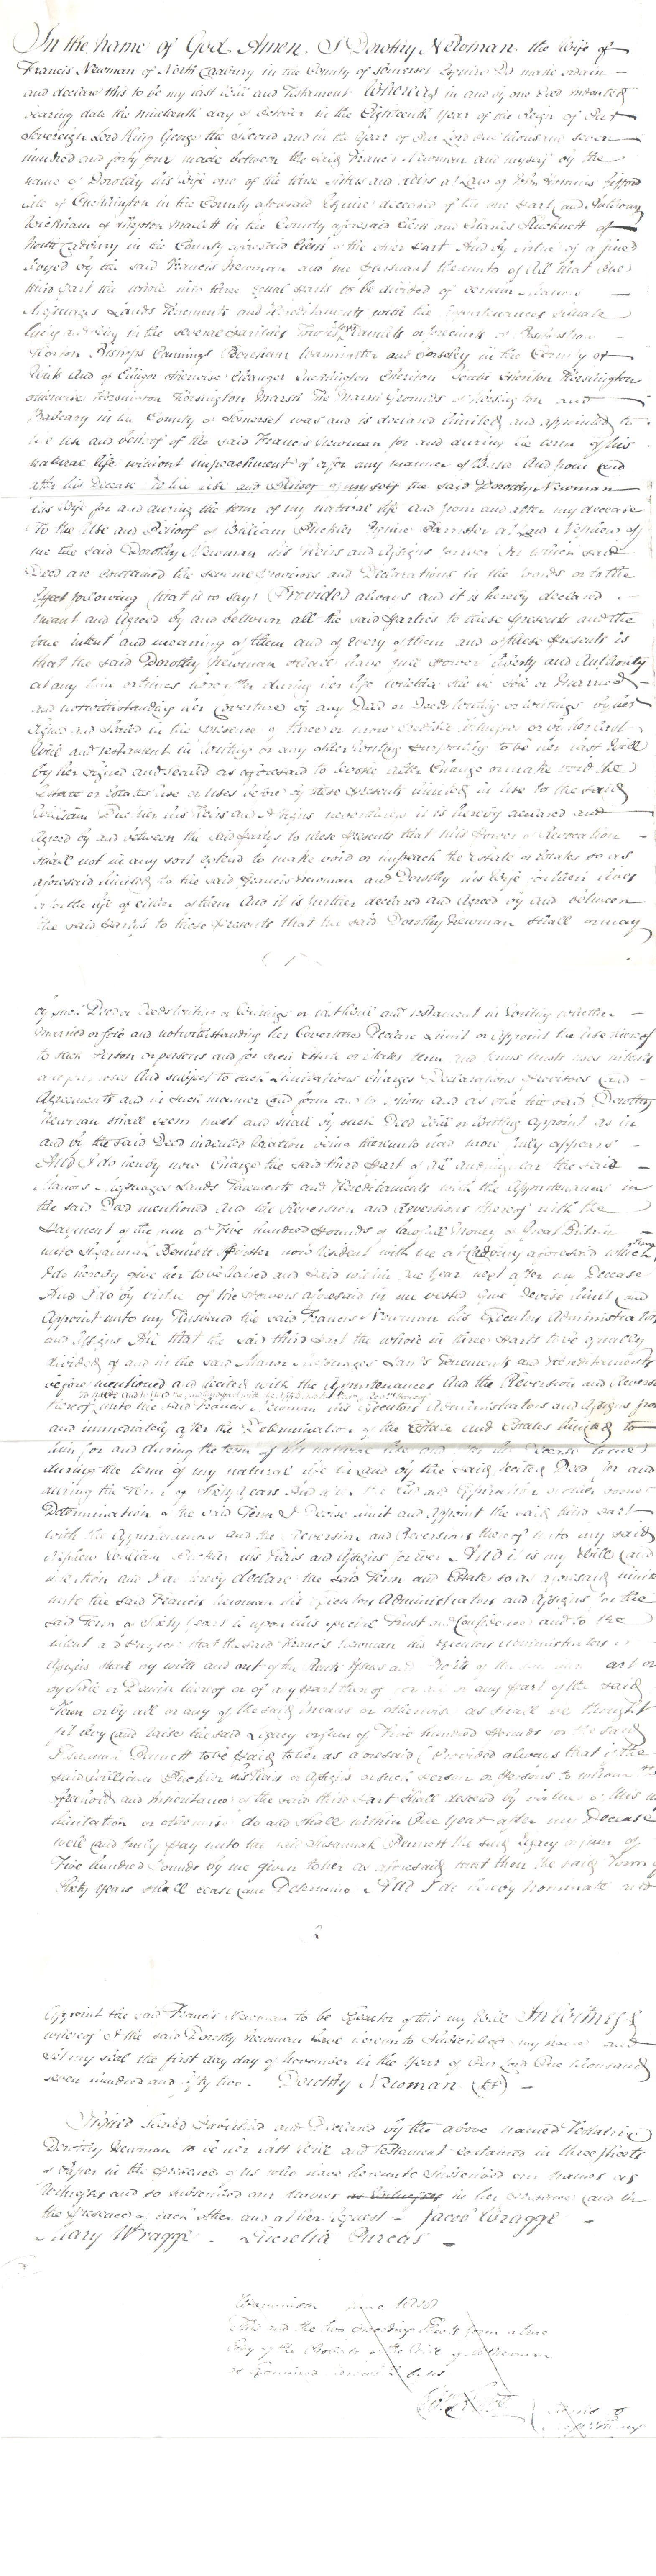 In the Name of God Amen I Dorothy Newman the Wife of
Francis Newman of North Cadbury in the County of Somerset Esquire Do make ordain
and declare this to be my last Will and Testament Whereas in and by one Deed Indented
bearing date the Nineteenth day of October in the Eighteenth Year of the Reign of Our
Sovereign Lord King George the Second and in the Year of Our Lord One thousand seven
hundred and forty four made between the said Francis Newman and myself by the
name of Dorothy his Wife one of the three Sisters and Heirs at Law of John
late of Cucklington in the County aforesaid Esquire deceased of the one Part and Anthony
Wickham of Shepton Mallett in the County aforesaid Clerk and Charles of
North Cadbury in the County aforesaid Clerk of the other Part And by virtue of a fine
levyed by the said Francis Newman and me Pursuant thereunto of All that One
third part the whole into three Equal Parts to be divided of certain Manors
Messuages Lands Tenements and Hereditaments with the Appurtenances situate
lying and being in the several Parishes Towns Hamlets or Precincts of
Bishops Cannings Boreham Warminster and Corsley in the County of
Wilts And of Clinger otherwise Clanger Cucklington Cheriton South Cheriton Horsington
otherwise Horsington Marsh The Marsh Grounds of Horsington and
Babcary in the County of Somerset was and is declared limited and appointed to
the Use and behoof of the said Francis Newman for and during the term of his
natural life without impeachment of or for any manner of Waste And from and
after his Decease To the use and Behoof of myself the said Dorothy Newman
his Wife for and during the term of my natural life and from and after my decease
To the Use and Behoof of William Esquire Barrister at Law Nephew of
me the said Dorothy Newman his Heirs and Assigns forever In which said
Deed are contained the several Provisoes and Declarations in the Words or to the
Effect following (that is to say) Provided always and it is hereby declared
meant and Agreed by and between all the said Parties to these Presents and the
true intent and meaning of them and of every of them and of these Presents is
that the said Dorothy Newman shall have full Power Liberty and Authority
at any time or times hereafter during her life whether she be Sole or Married
and notwithstanding her Coverture by any Deed or Deeds Writing or Writings by her
signed and sealed in the presence of three or more credible Witnesses or by her last
Will and Testament in Writing or any other Writing purporting to be her last Will
by her signed and sealed as aforesaid to revoke alter Change or make void the
Estate or Estates Use or Uses before by these Presents limited in Use to the said
William his Heirs and Assigns nevertheless it is hereby declared and
Agreed by and between the said parties to these Presents that this Power of Revocation
shall not in any sort extend to make void or impeach the Estate or Estates so as
aforesaid limited to the said Francis Newman and Dorothy his Wife for their lives
or for the life of either of them And it is further declared and Agreed by and between
the said Partys to these Presents that the said Dorothy Newman shall or may
by such Deed or Deeds Writing or Writings or last Will and Testament in Writing whether
married or sole and notwithstanding her Coverture Declare Limit or Appoint the Use thereof
to such Person or persons and for such Estate or Estates term and terms trusts uses intents
and purposes And subject to such Limitations Charges Declarations Provisoes and
Agreements and in such manner and form and to whom and as she the said Dorothy
Newman shall seem meet and shall by such Deed Will or Writing appoint as in
and by the said Deed indented Relation being thereunto had more fully appears
And I do hereby now Charge the said third Part of All and singular the said
Manors Messuages Lands Tenements and Hereditaments with the Appurtenances in
the said Deed mentioned and the Reversion and Reversions thereof with the
Payment of the sum of Five hundred Pounds of lawfull Money of Great Britain
unto Susannah Bennett Spinster now resident with me at Cadbury aforesaid which Sum
I do hereby give her to be raised and paid within One Year next after my Decease
And I do by virtue of the Powers aforesaid in me vested Give Devise limit and
Appoint unto my Husband the said Francis Newman his Executors Administrators
and Assigns All that the said third Part the whole in three Parts to be equally
divided of and in the said Manors Messuages Lands Tenements and Hereditaments
before mentioned and recited with the Appurtenances And the Reversion and Reversions
thereof unto the said Francis Newman his Executors Administrators and Assigns from
and immediately after the Determination of the Estate and Estates limited to
him for and during the term of his natural life and after his Decease to me
during the term of my natural life in and by the said recited Deed for and
during the Term of Sixty Years And after the End and Expiration or other sooner
Determination of the said Term I Devise limit and Appoint the said third part
with the Appurtenances and the Reversion and Reversions thereof unto my said
Nephew William his Heirs and Assigns forever And it is my Will and
intention and I do hereby declare the said Term and Estate so as aforesaid limited
unto the said Francis Newman his Executors Administrators and Assigns for the
said Term of Sixty Years is upon this special Trust and Confidence and to the
intent and Purpose that the said Francis Newman his Executors Administrators or
Assigns shall by with and out of the Rents Issues and Profits of the said third part or
by Sale or Demise thereof or of any part thereof for all or any part of the said
Term or by all or any of the said Means or otherwise as shall be thought
fit levy and raise the said Legacy or Sum of Five hundred Pounds for the said
Susannah Bennett to be paid to her as aforesaid Provided always that if the
said William his Heirs or Assigns or such Person or Persons to whom the
freehold and Inheritance of the said third Part shall descend by virtue of this
limitation or otherwise do and shall within One Year after my Decease
well and truly pay unto the said Susannah Bennett the said Legacy or Sum of
Five hundred Pounds by me given to her as aforesaid that then the said Term of
Sixty Years shall cease and Determine And I do hereby nominate and
2
Appoint the said Francis Newman to be Executor of this my Will In Witness
whereof I the said Dorothy Newman have hereunto Subscribed my name and
set my seal the first day day of November in the Year of Our Lord One thousand
seven hundred and fifty two. Dorothy Newman
Signed Sealed Published and Declared by the above named Testatrix
Dorothy Newman to be her last Will and Testament contained in three sheets
of Paper in the Presence of us who have hereunto Subscribed our Names as
Witnesses and so subscribed our Names as Witnesses in her Presence and in
the Presence of each other and at her Request Jacob Wragge
Mary Wragge Lucretia
Warminster June
This and the two preceding Sheets form a true
Copy of the Probate of the Will of Newman
as Examined by us